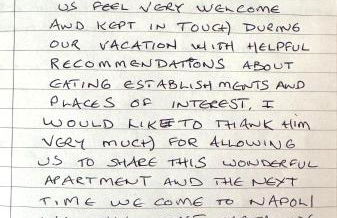 US FEEL VERY WELCOME
AND KEPT IN TOUCH DURING
OUR VACATION WITH HELPFUL
RECOMMENDATIONS ABOUT
EATING ESTABLISHMENTS AND
PLACES OF INTEREST. I
WOULD LIKE TO THANK HIM
VERY MUCH FOR ALLOWING
US TO SHARE THIS WONDERFUL
APARTMENT AND THE NEXT
TIME WE COME TO NAPOLI